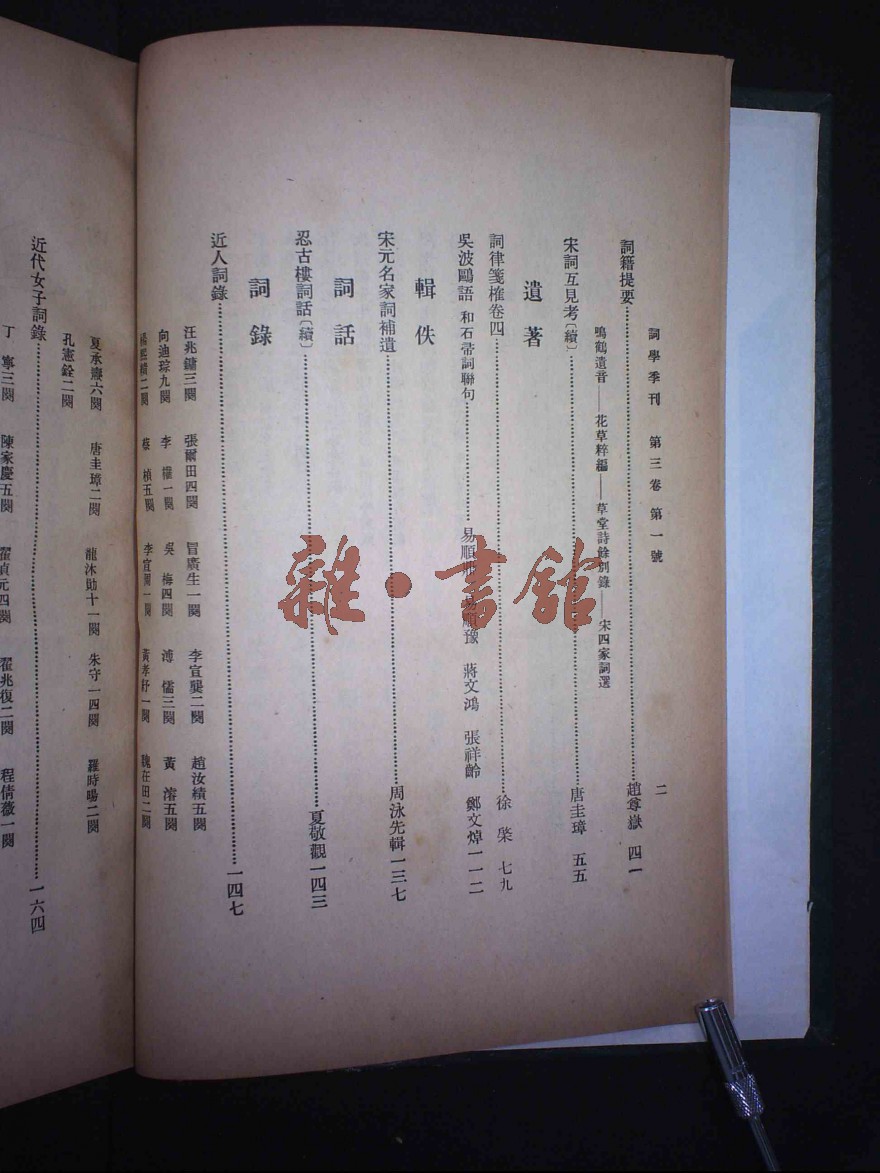 詞學季刊　第三卷　第一號
二
詞籍提要……趙尊嶽　四一
鳴鶴遺音——花草粹編——草堂詩餘別錄——宋四家詞選
宋詞互見考〔續〕……唐圭璋　五五
遺著
詞律箋榷卷四……徐棨　七九
吳波鷗語　和石帚詞聯句……易順　易順豫　蔣文鴻　張祥齡　鄭文焯一一二
輯佚
宋元名家詞補遺……周泳先輯一三七
詞話
忍古樓詞話〔續〕……夏敬觀一四三
詞錄
近人詞錄……一四七
汪兆鏞三闋　張爾田四闋　冒廣生一闋　李宣龔二闋　趙汝績五闋
向迪琮九闋　李權一闋　吳梅四闋　溥儒三闋　黃濬五闋
二闋　蔡楨五闋　李宣倜一闋　黃孝紓一闋　魏在田二闋
夏承燾六闋　唐圭璋二闋　龍沐勛十一闋　朱守一四闋　羅時暘二闋
孔憲銓二闋
近代女子詞錄……一六四
丁寧三闋　陳家慶五闋　翟貞元四闋　翟兆復二闋　程倩薇一闋
雜·書館